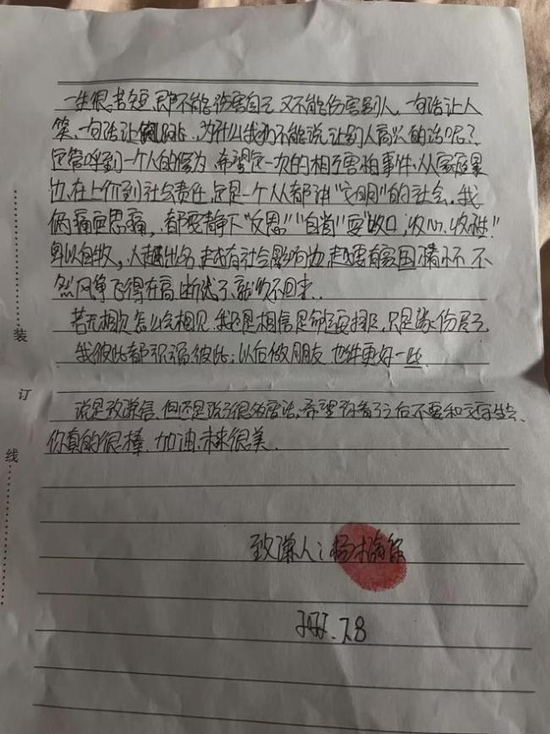 一生很苦短，即不能伤害自己，又不能伤害别人，一句话让人
笑，一句话让人跳，为什么我们不能说让别人高兴的话呢？
这常呼到一个人的修为，希望这一次的相互害怕事件，从家庭暴
边，在上价到社会责任，这是一个人人都讲"文明"的社会，我
俩痛定思痛，都要静下"反思""自省"要"收口，收心，收碰"
卑以自牧，人越出名，越有社会影响力，越要有家国情怀，不
然风筝飞得在高，断线了，就收不回来。
若无相欠怎么会相见，我还是相信是命运安排，只是缘份尽了，
我彼此都祝福彼此，以后做朋友也许更好一些
说是致谦信，但还是说了很多废话，希望你看了之后不要和文字生气，
你真的很棒，加油，未来很美。
致谦人：
7.8
装
订
线